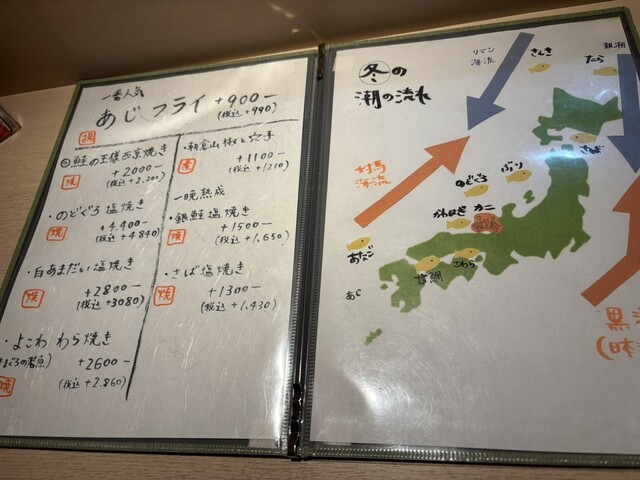 一番人気
あじフライ +900-
(税込 +990)
揚
鮭の王様西京焼き
焼
+2000-
(税込 +2,200)
・のどぐろ塩焼き
焼
+4,400-
(税込 +4840)
・白あまだい塩焼き
焼
+2800-
(税込 +3080)
・よこわ わら焼き
まぐろの若魚)
+2600-
焼
(税込 +2,860)
・朝倉山椒と穴子
+1100-
(税込 +1210)
一晩熟成
・銀鮭塩焼き
焼
+1500-
(税込 +1,650)
・さば塩焼き
焼
+1300-
(税込 +1,430)
冬の
潮の流れ
リマン
海流
さんき
親潮
たら
さば
対馬
海流
のどぐろ
ぶり
かわはぎ
カニ
あなご
甘鯛
さわら
あじ
黒